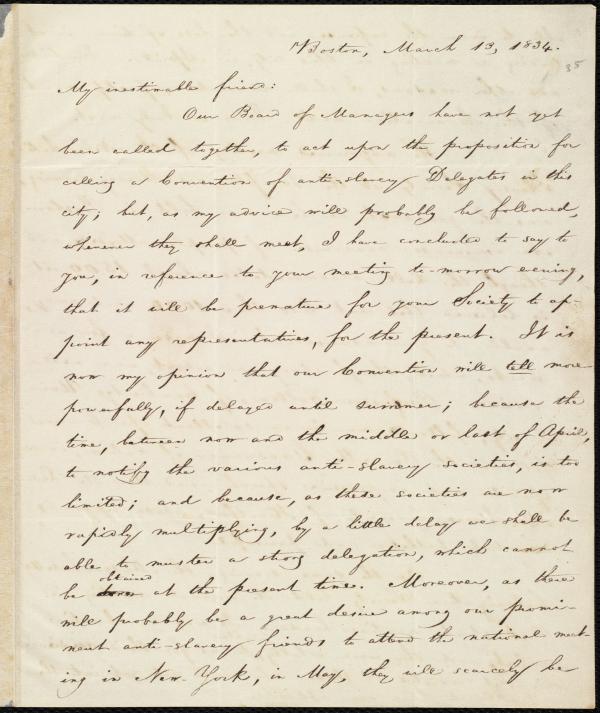 Boston, March 13, 1834.
35
My inestimable friend:
Our Board of Managers have not yet
been called together, to act upon the proposition for
calling a Convention of anti-slavery Delegates in this
city; but, as my advice will probably be followed,
whenever they shall meet, I have concluded to say to
you, in reference to your meeting to-morrow evening,
that it will be premature for your Society to ap-
point any representatives, for the present. It is
now my opinion that our Convention will tell more
powerfully, if delayed until summer; because the
time, between now and the middle or last of April,
to notify the various anti-slavery societies, is too
limited; and because, as these societies are now
rapidly multiplying, by a little delay we shall be
able to muster a strong delegation, which cannot
be obtained at the present time. Moreover, as there
will probably be a great desire among our promi-
nent anti-slavery friends to attend the national meet-
ing in New-York, in May, they will scarcely be